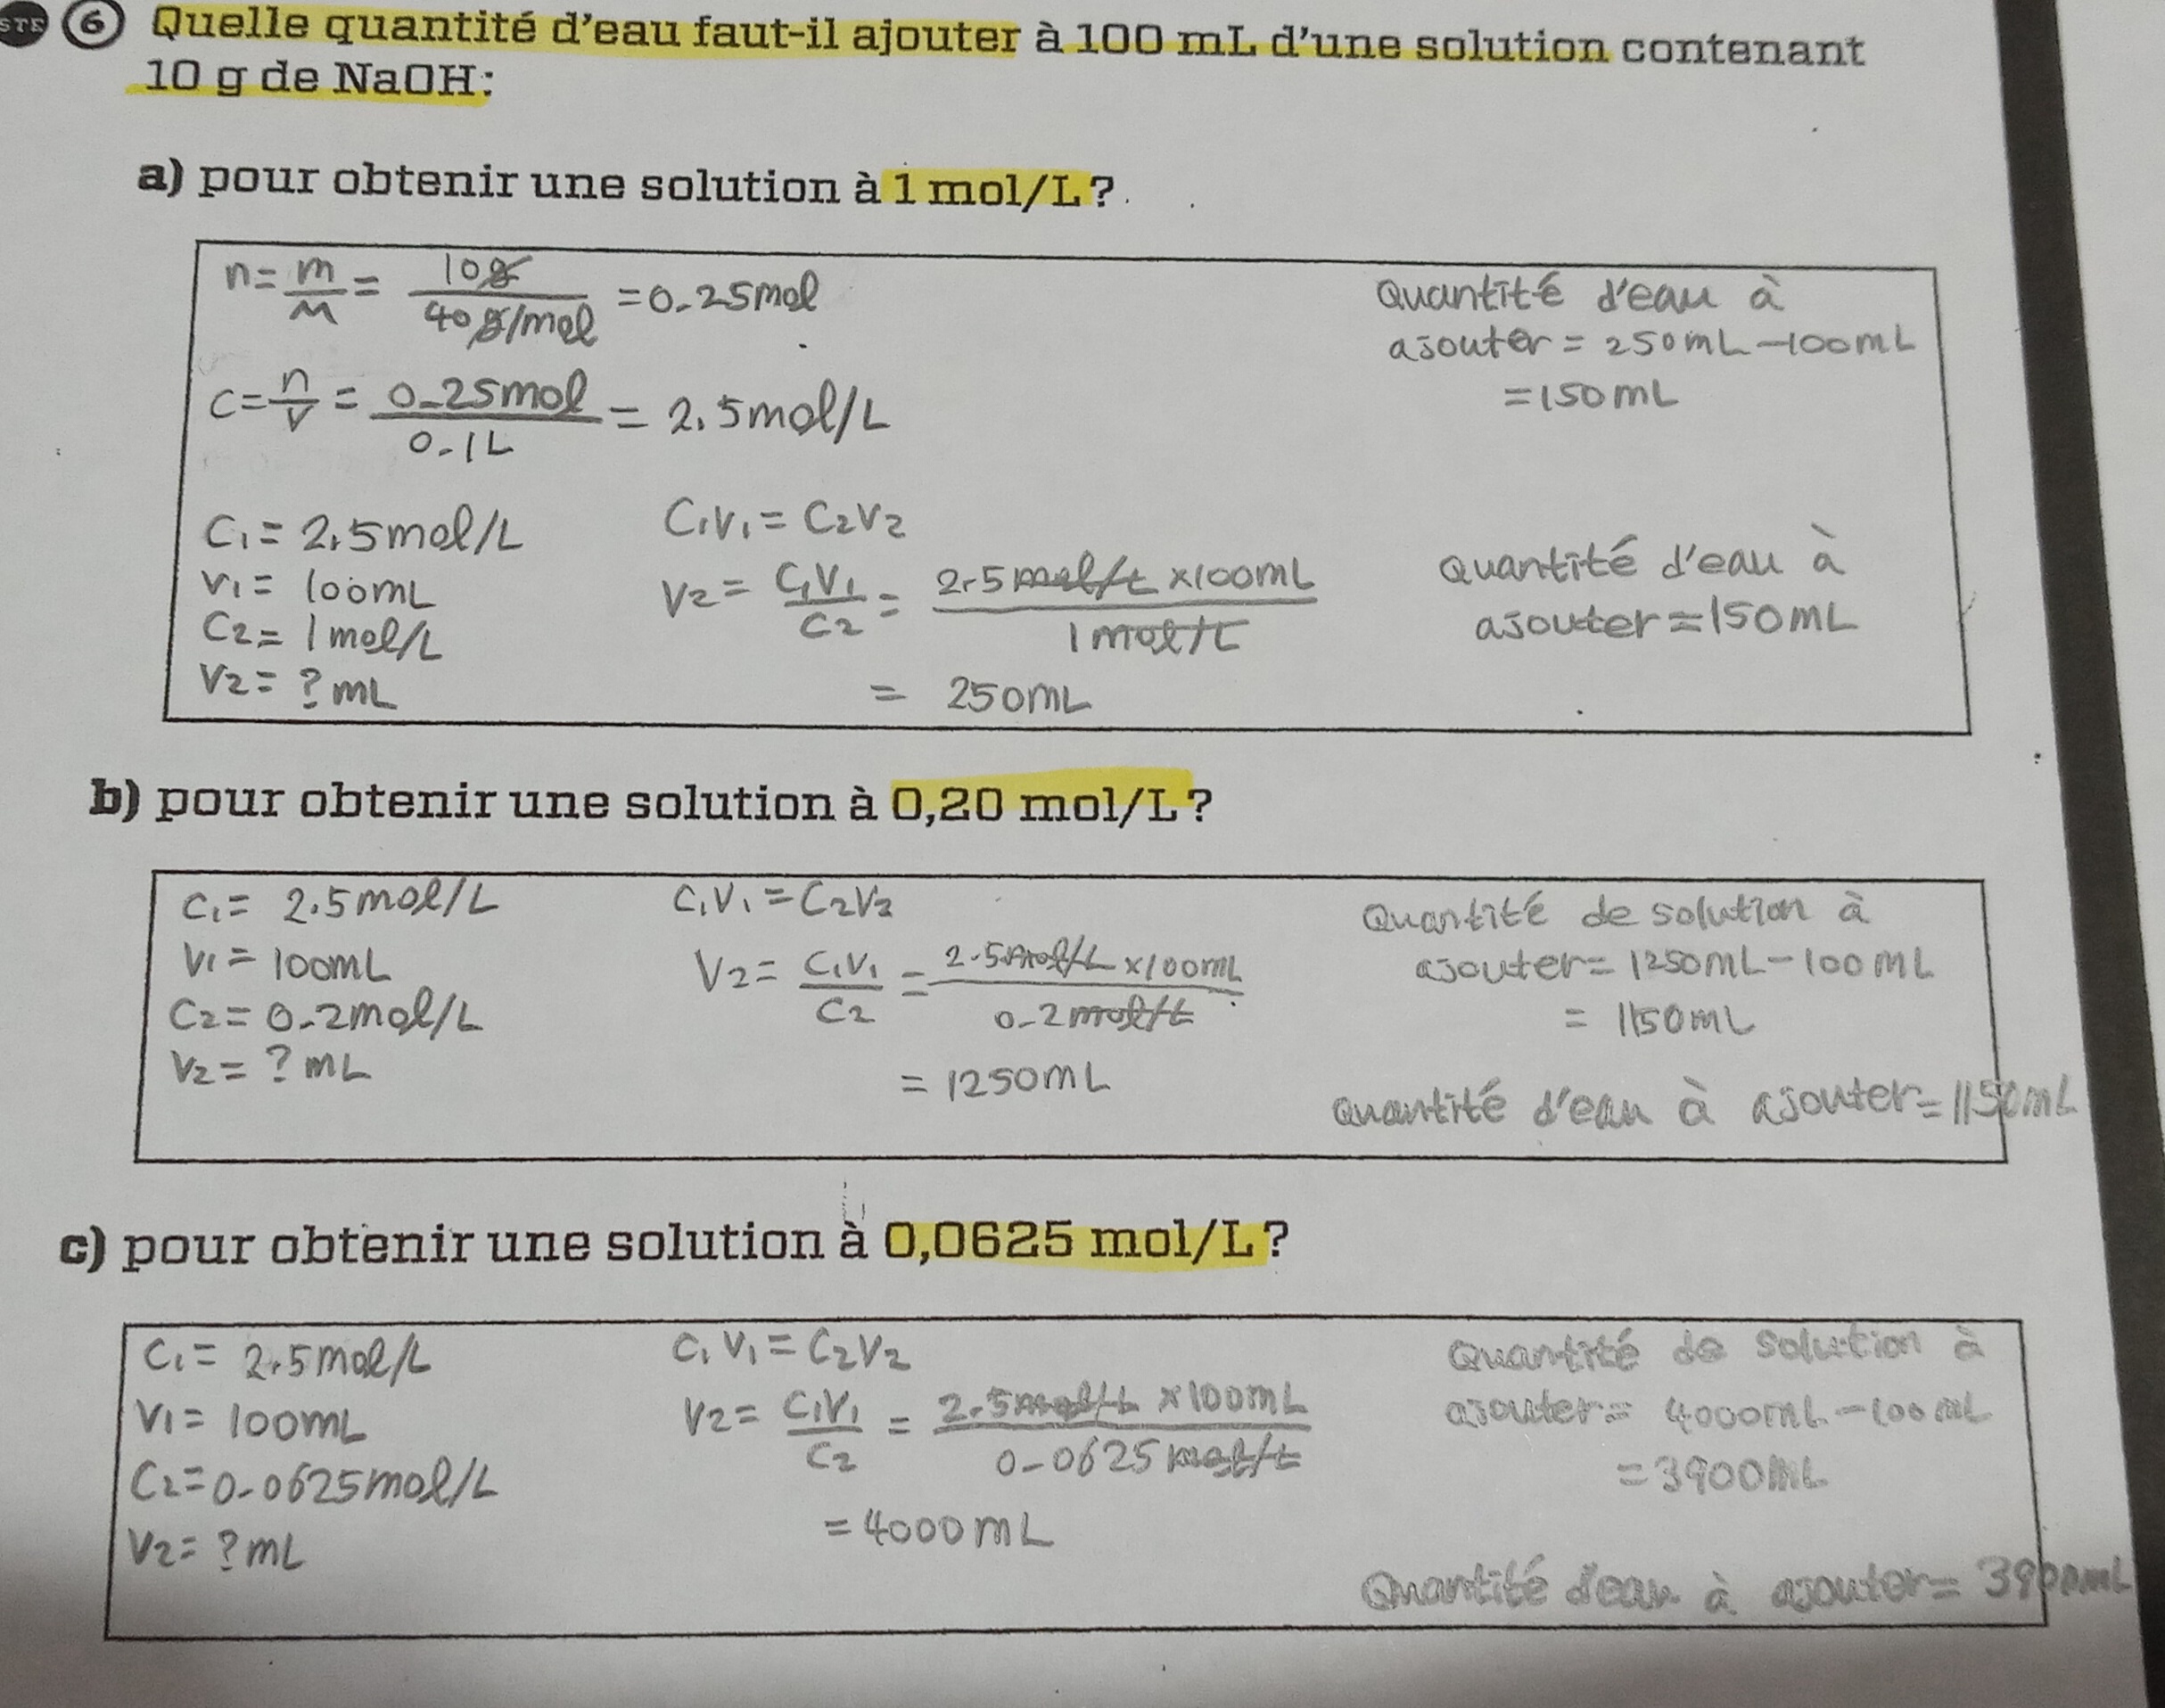 STE 6 Quelle quantité d'eau faut-il ajouter à 100 mL d'une solution contenant
10 g de NaOH:
a) pour obtenir une solution à 1 mol/L?
n = m/M = 10g / 40g/mol = 0.25mol
C = n/V = 0.25mol / 0.1L = 2.5mol/L
Quantité d'eau à
ajouter = 250mL - 100mL
= 150mL
C1 = 2.5mol/L
V1 = 100mL
C2 = 1mol/L
V2 = ? mL
C1V1 = C2V2
V2 = C1V1 / C2 = 2.5mol/L x 100mL / 1mol/L
= 250mL
Quantité d'eau à
ajouter = 150mL
b) pour obtenir une solution à 0,20 mol/L?
C1 = 2.5mol/L
V1 = 100mL
C2 = 0.2mol/L
V2 = ? mL
C1V1 = C2V2
V2 = C1V1 / C2 = 2.5mol/L x 100mL / 0.2mol/L
= 1250mL
Quantité de solution à
ajouter = 1250mL - 100mL
= 1150mL
Quantité d'eau à ajouter = 1150mL
c) pour obtenir une solution à 0,0625 mol/L?
C1 = 2.5mol/L
V1 = 100mL
C2 = 0.0625mol/L
V2 = ? mL
C1V1 = C2V2
V2 = C1V1 / C2 = 2.5mol/L x 100mL / 0.0625mol/L
= 4000mL
Quantité de solution à
ajouter = 4000mL - 100mL
= 3900mL
Quantité d'eau à ajouter = 3900mL